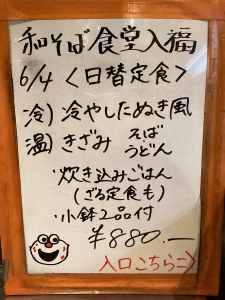 和そば食堂入福
6/4 〈日替定食〉
冷) 冷やしたぬき風
温) きざみ そば
うどん
炊き込みごはん
(ざる定食も)
小鉢2品付
¥880.—
入口こちら⇨